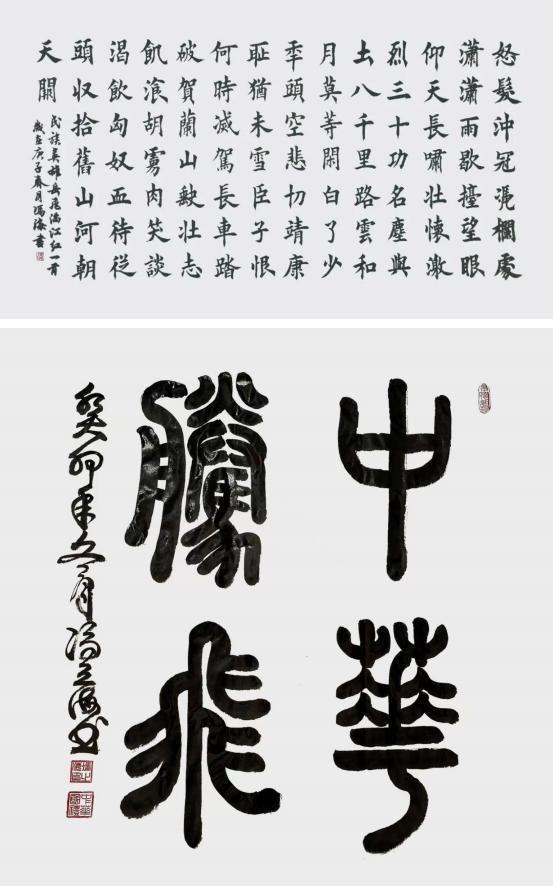 怒髮沖冠凴欄處
瀟瀟雨歇擡望眼
仰天長嘯壯懷激
烈三十功名塵與
土八千里路雲和
月莫等閑白了少
秊頭空悲切靖康
恥猶未雪臣子恨
何時滅駕長車踏
破賀蘭山缺壯志
飢湌胡虜肉笑談
渴飲匈奴血待從
頭収拾舊山河朝
天闕
民族英雄岳飛滿江紅一首
歲在庚子春月馮海書
中華
騰飛
癸卯年冬月馮立海書